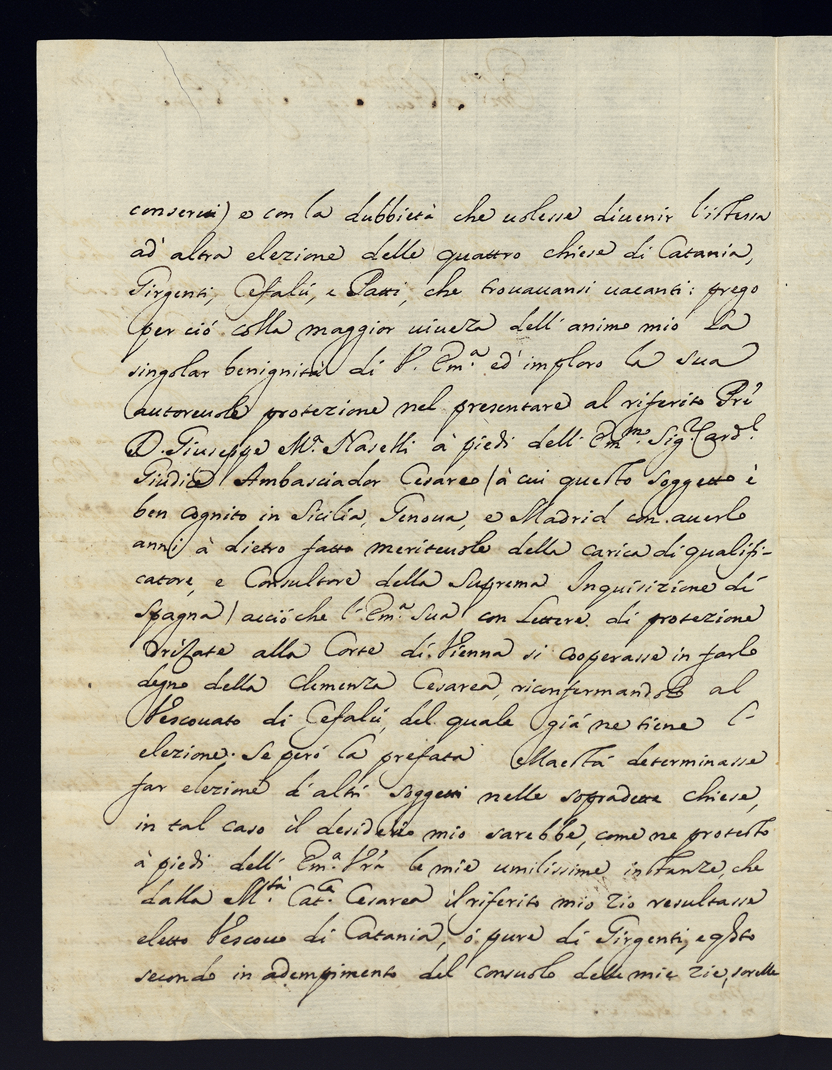 conservi) e con la dubbietà che volesse divenir l'istessa
ad' altra elezione delle quattro chiese di Catania,
Girgenti, Cefalù, e Patti, che trovavansi vacanti: prego
per ciò colla maggior viveza dell' animo mio La
singolar benignità di V. Em.ª ed' imploro la sua
autorevole protezione nel presentare al riferito Pr͠e
D. Giuseppe M.ª Naselli à piedi dell' Em.mo Sig.r Card.l
Giudice Ambasciador Cesareo /à cui questo soggetto è
ben cognito in Sicilia, Genova, e Madrid con averlo
anni à dietro fatto meritevole della carica di qualifi-
catore, e Consultore della Suprema Inquisizione di
Spagna / acciò che l' Em.ª Sua con Lettere di protezione
drizate alla Corte di Vienna si cooperasse in farlo
degno della Clemenza Cesarea, riconfermandolo al
Vescovato di Cefalù, del quale già ne tiene l'
elezione. Se però la prefata Maestà determinasse
far elezione d'altri soggetti nelle sopradette chiese,
in tal caso il desiderio mio sarebbe, come ne protesto
à piedi dell' Em.ª Vr͠a le mie umilissime instanze, che
dalla M.stà Cat.ca Cesarea il riferito mio zio resultasse
eletto Vescovo di Catania, ò pure di Girgenti, e q͠sto
secondo in adempimento del consuolo delle mie zie, sorelle